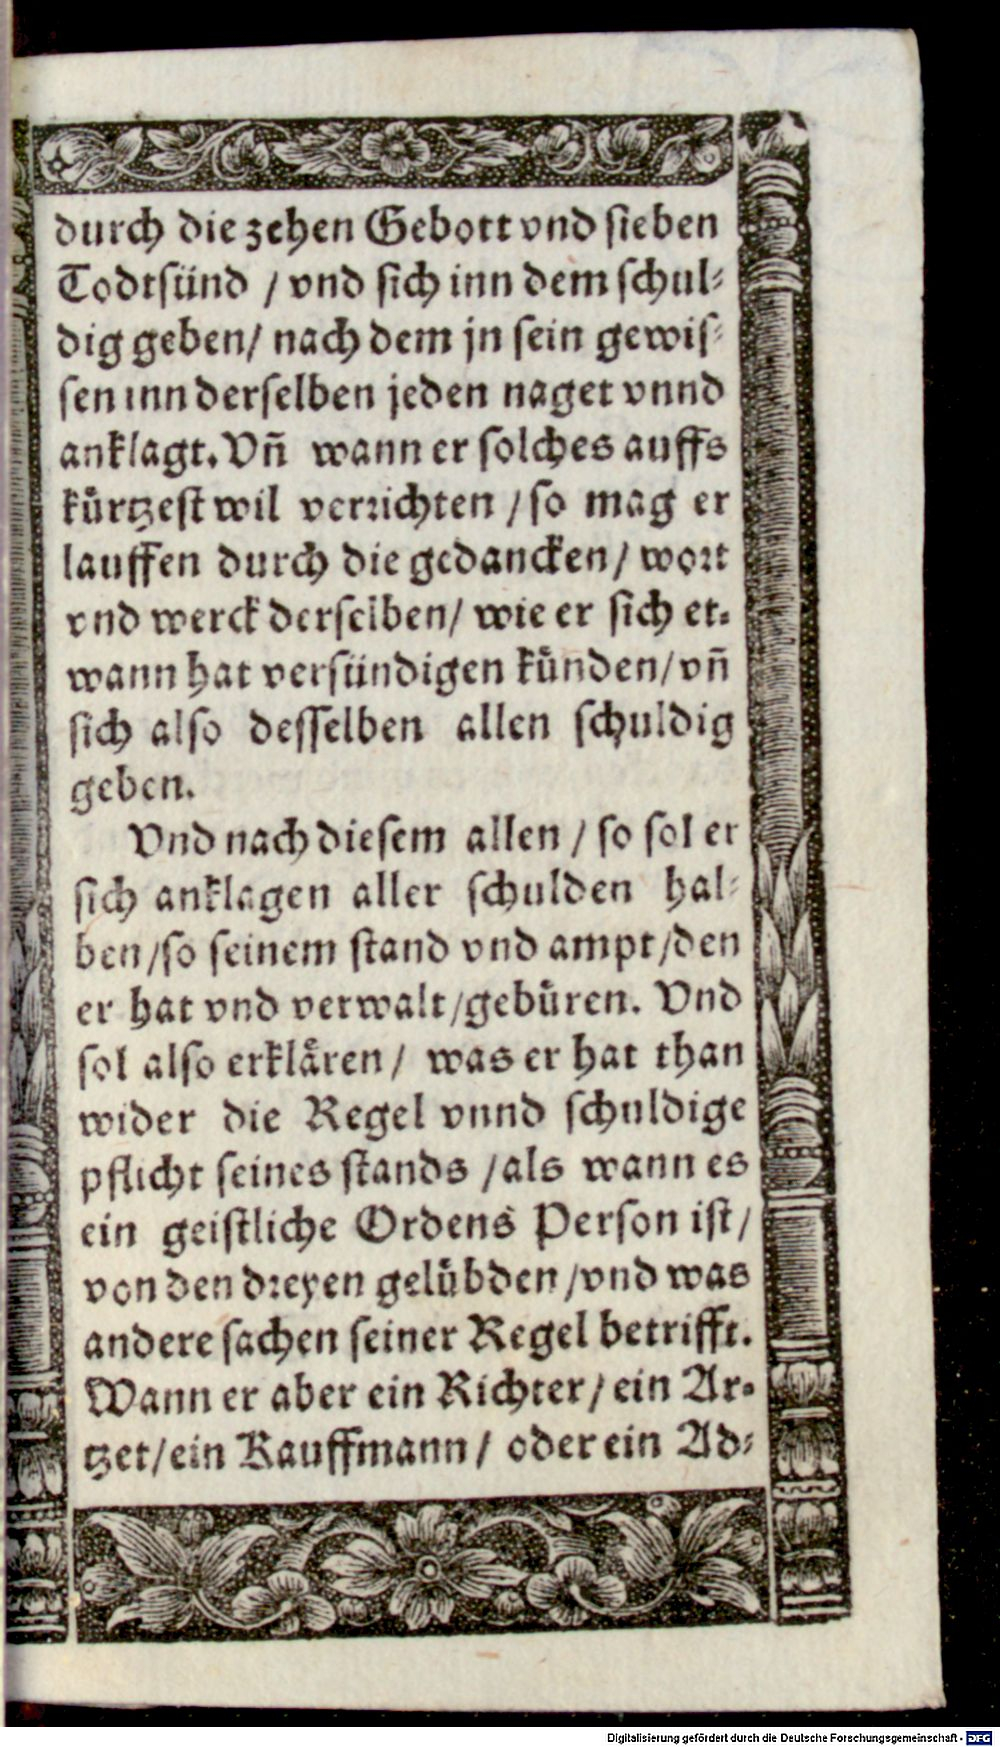 durch die zehen Gebott vnd sieben
Todtsünd / vnd sich inn dem schul-
dig geben / nach dem jn sein gewis-
sen inn derselben jeden naget vnnd
anklagt. Vñ wann er solches auffs
kürtzest wil verrichten / so mag er
lauffen durch die gedancken / wort
vnd werck derselben / wie er sich et-
wann hat versündigen künden / vñ
sich also desselben allen schuldig
geben.
Vnd nach diesem allen / so sol er
sich anklagen aller schulden hal-
ben / so seinem stand vnd ampt / den
er hat vnd verwalt / gebüren. Vnd
sol also erklären / was er hat than
wider die Regel vnnd schuldige
pflicht seines stands / als wann es
ein geistliche Ordens Person ist /
von den dreyen gelübden / vnd was
andere sachen seiner Regel betrifft.
Wann er aber ein Richter / ein Ar-
tzet / ein Kauffmann / oder ein Ad-
Digitalisierung gefördert durch die Deutsche Forschungsgemeinschaft - DFG